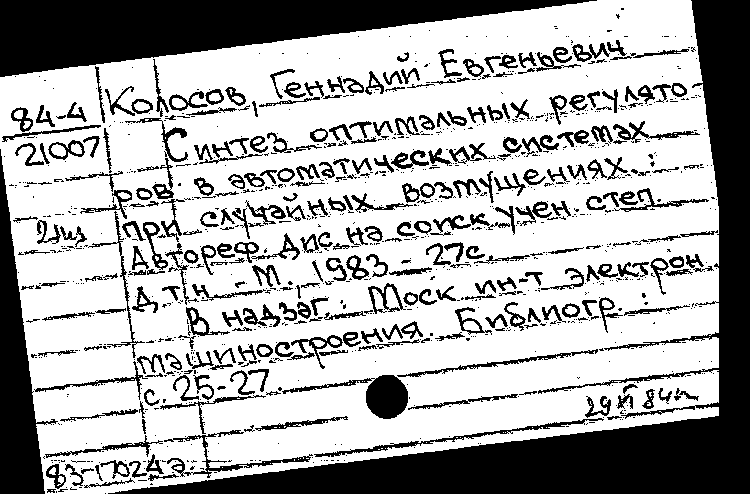 84-4
21007
2 экз
Колосов, Геннадий Евгеньевич
Синтез оптимальных регулято-
ров в автоматических системах
при случайных возмущениях. :
Автореф. дис. на соиск учен. степ.
Д.т.н. - М., 1983 - 27с.
В надзаг.: Моск ин-т электрон.
машиностроения. Библиогр. :
с. 25-27.
83-17024а.